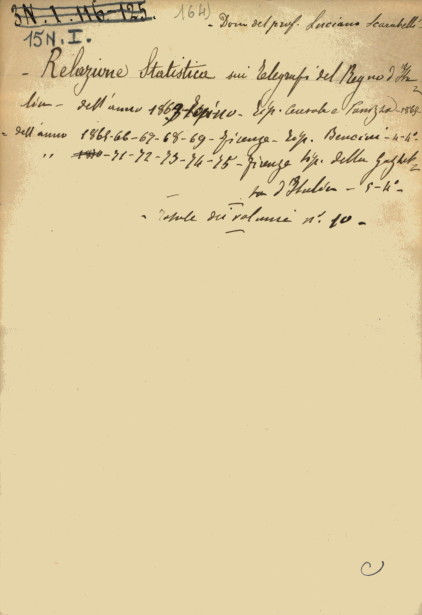 3 N. 1. 116-125. 164)
15 N. I. - Dono del prof. Luciano Scarabelli.
- Relazione Statistica sui Telegrafi del Regno d'Ita
lia - dell'anno 186 Torino - Tip. e 1865
- dell'anno 1865-66-67-68-69 - Firenze - Tip. Bencini - 4-4°
" 1870-71-72-73-74-75 - Firenze tip. della Gazzet
ta d'Italia - 5-4°-
- Totale dei volumi n°. 10 -